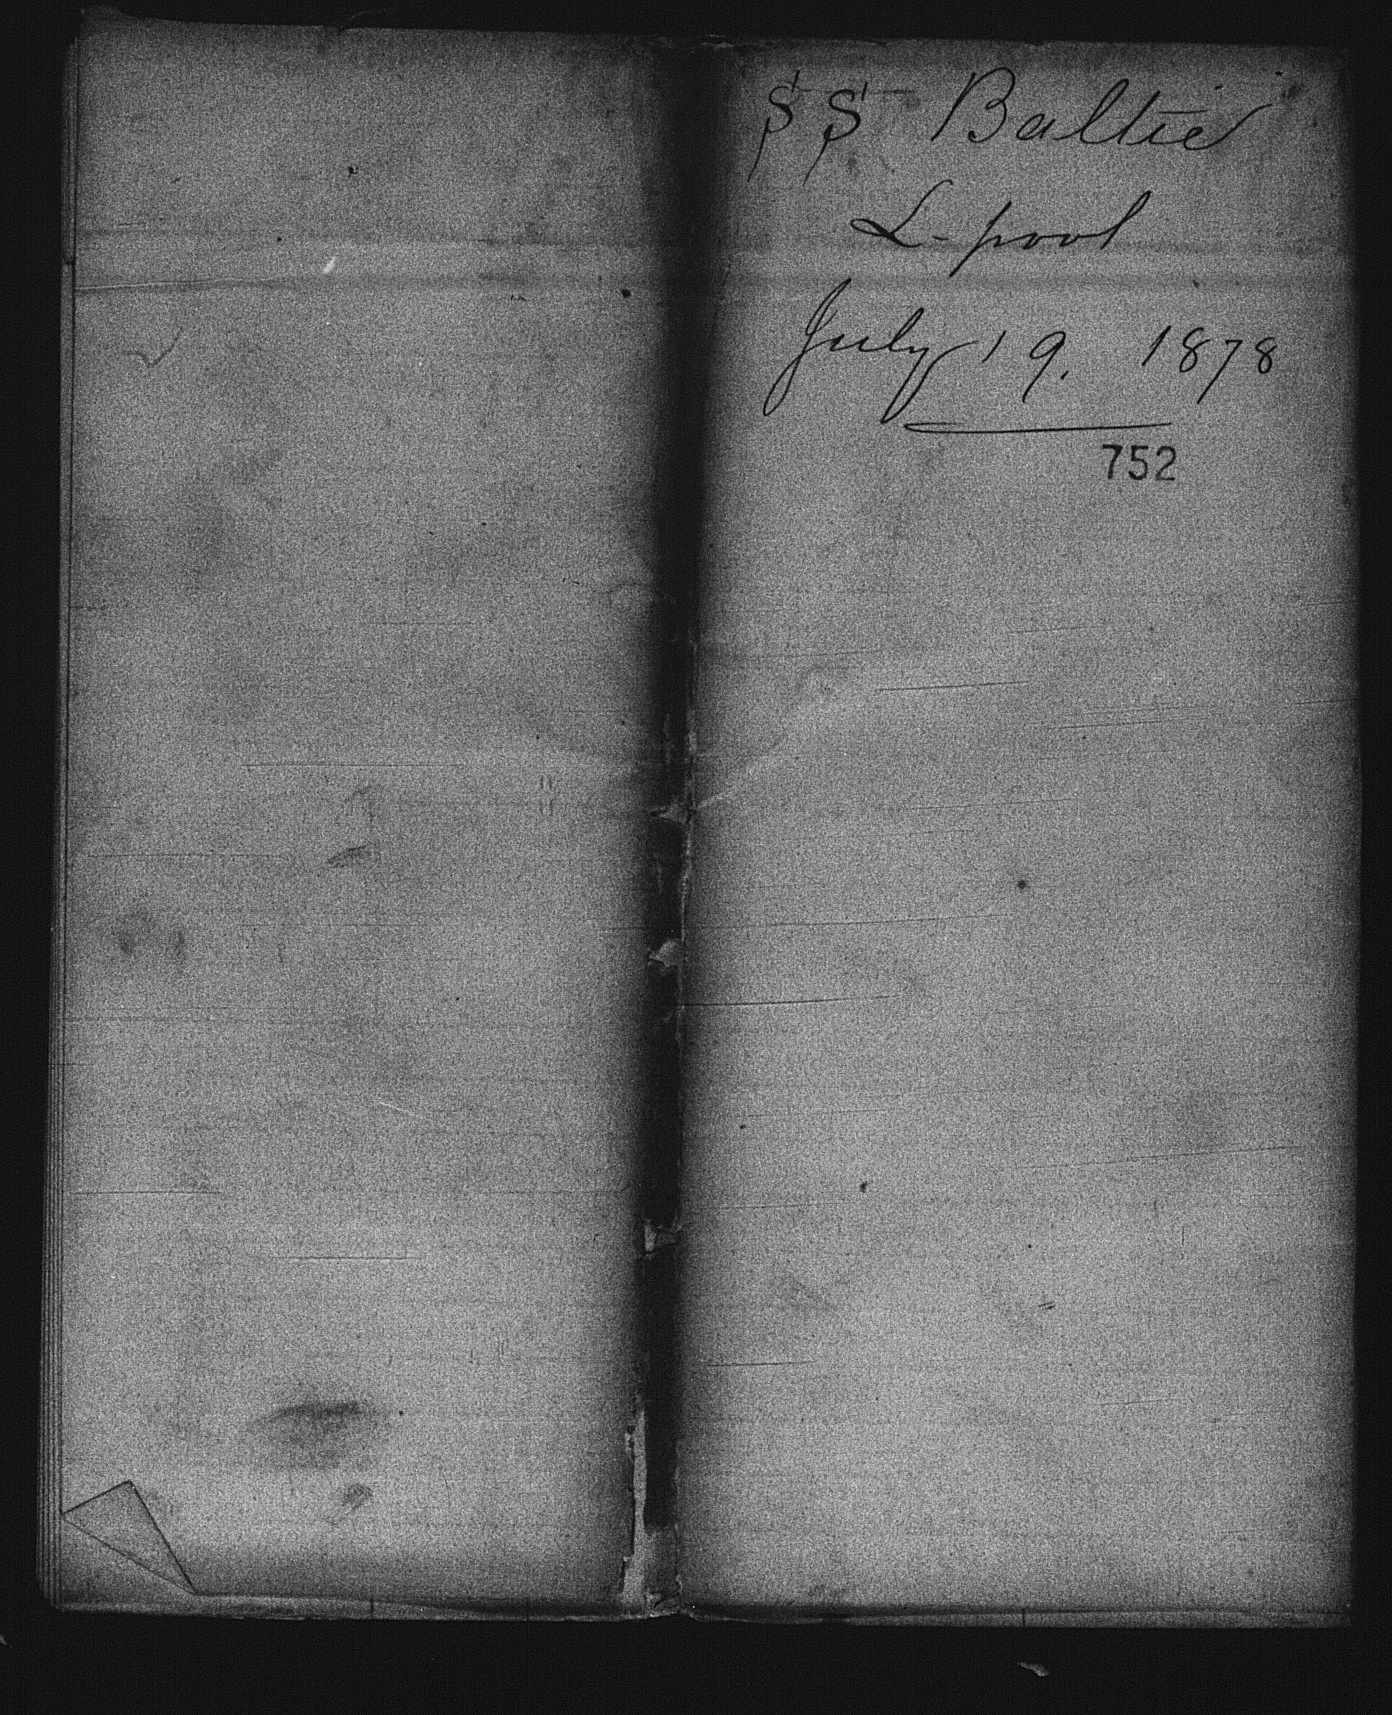 SS Baltic
L-pool
July 19. 1878
752